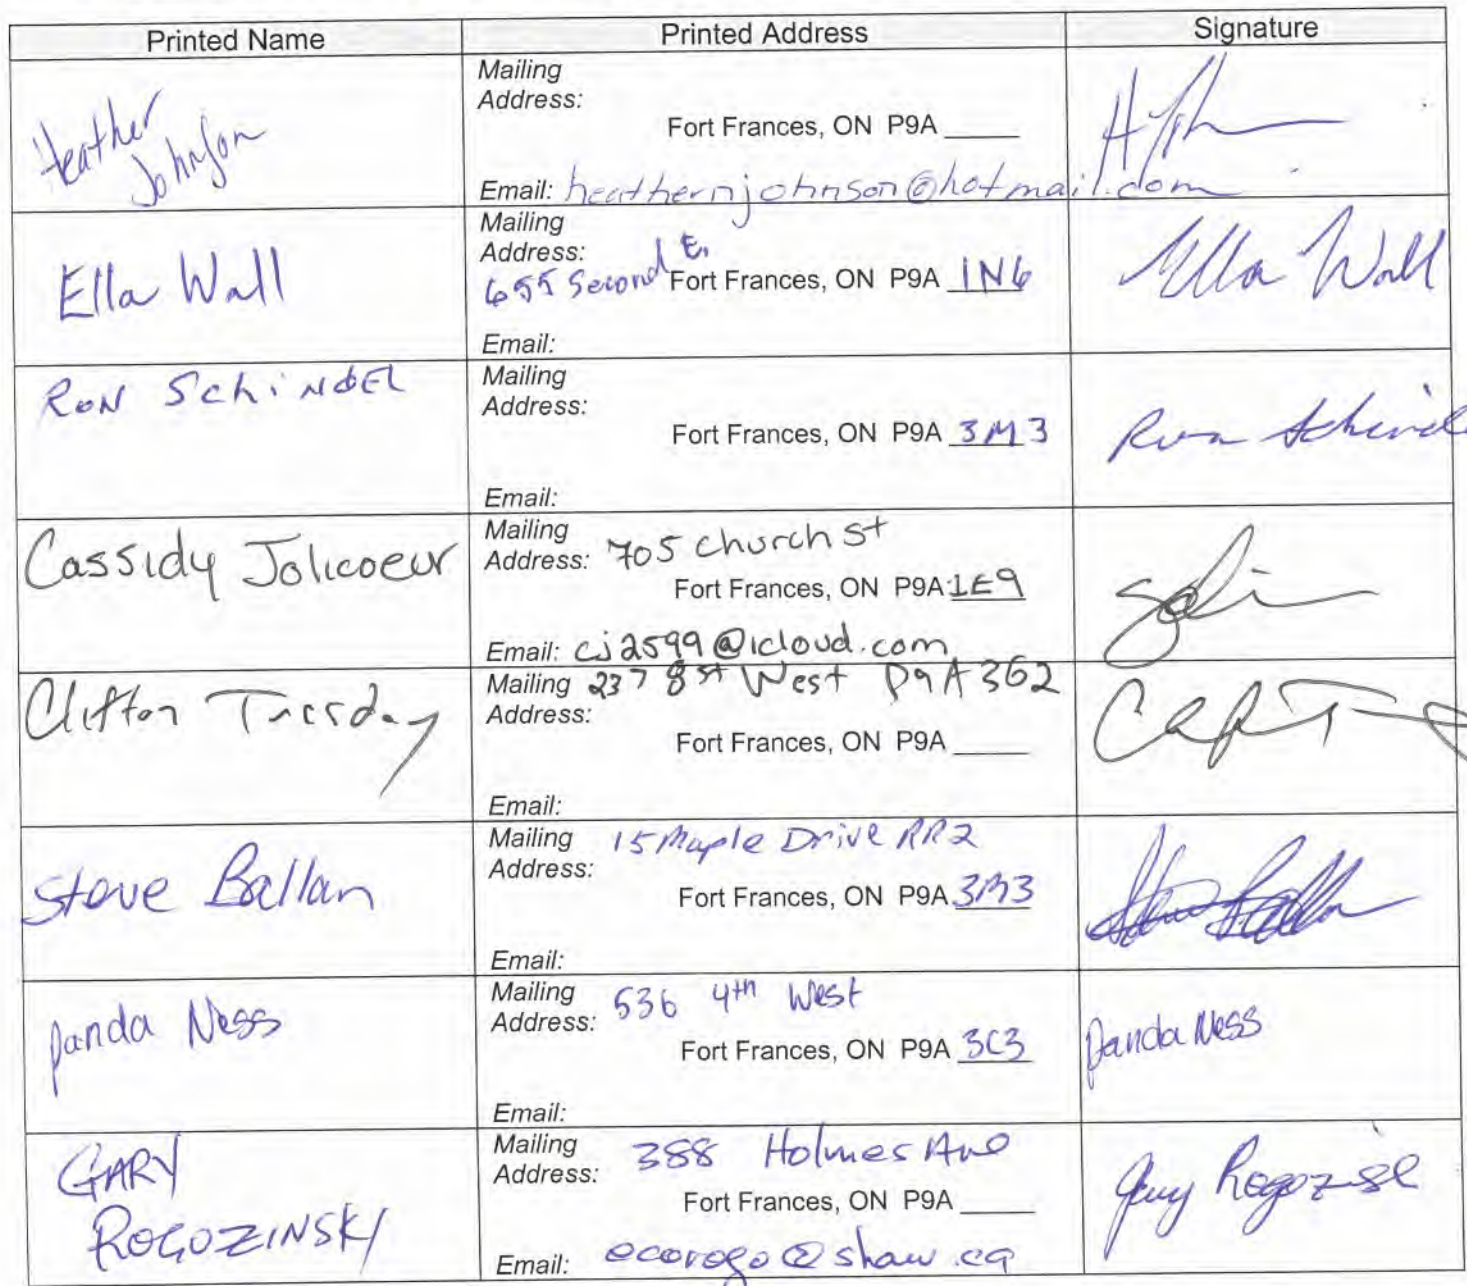 Printed Name Printed Address Signature
Heather
Johnson
Mailing
Address:
Fort Frances, ON P9A _____
Email: heathernjohnson@hotmail.com
Ella Wall
Mailing
Address:
655 Second E. Fort Frances, ON P9A 1N6
Email:
Ella Wall
RON SchiNdEL
Mailing
Address:
Fort Frances, ON P9A 3M3
Email:
Ron Schindel
Cassidy Jolicoeur
Mailing
Address: 705 church St
Fort Frances, ON P9A 1E9
Email: cj2599@icloud.com
Clifton Tuesday
Mailing 237 8st West P9A 3G2
Address:
Fort Frances, ON P9A _____
Email:
Steve Ballan
Mailing 15 Maple Drive RR2
Address:
Fort Frances, ON P9A 3M3
Email:
panda Ness
Mailing 536 4th West
Address:
Fort Frances, ON P9A 3C3
Email:
panda Ness
GARY
ROGOZINSKI
Mailing 388 Holmes Ave
Address:
Fort Frances, ON P9A _____
Email: ecorogo@shaw.ca